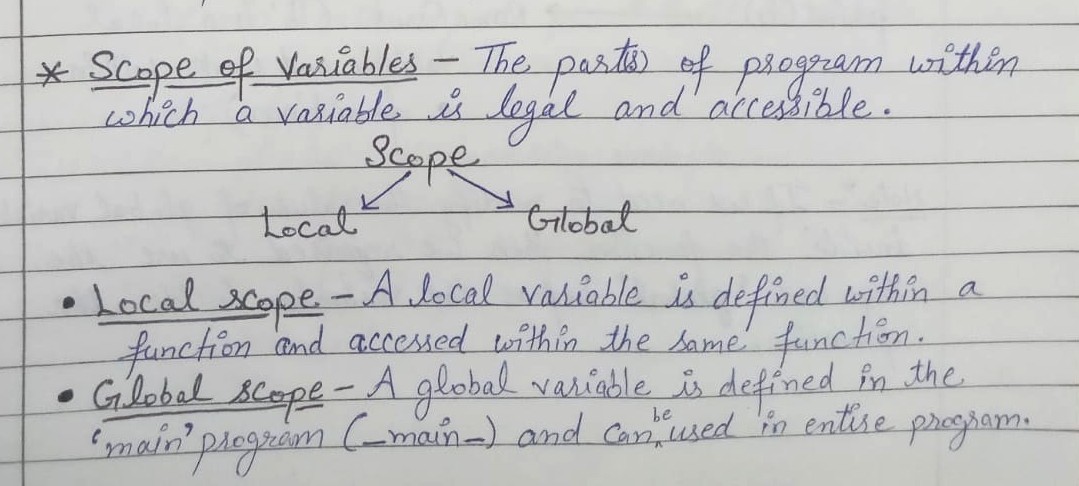 * Scope of Variables - The part(s) of program within
which a variable is legal and accessible.
Scope
Local Global
• Local scope - A local variable is defined within a
function and accessed within the same function.
• Global scope - A global variable is defined in the
'main' program (_main_) and can be used in entire program.